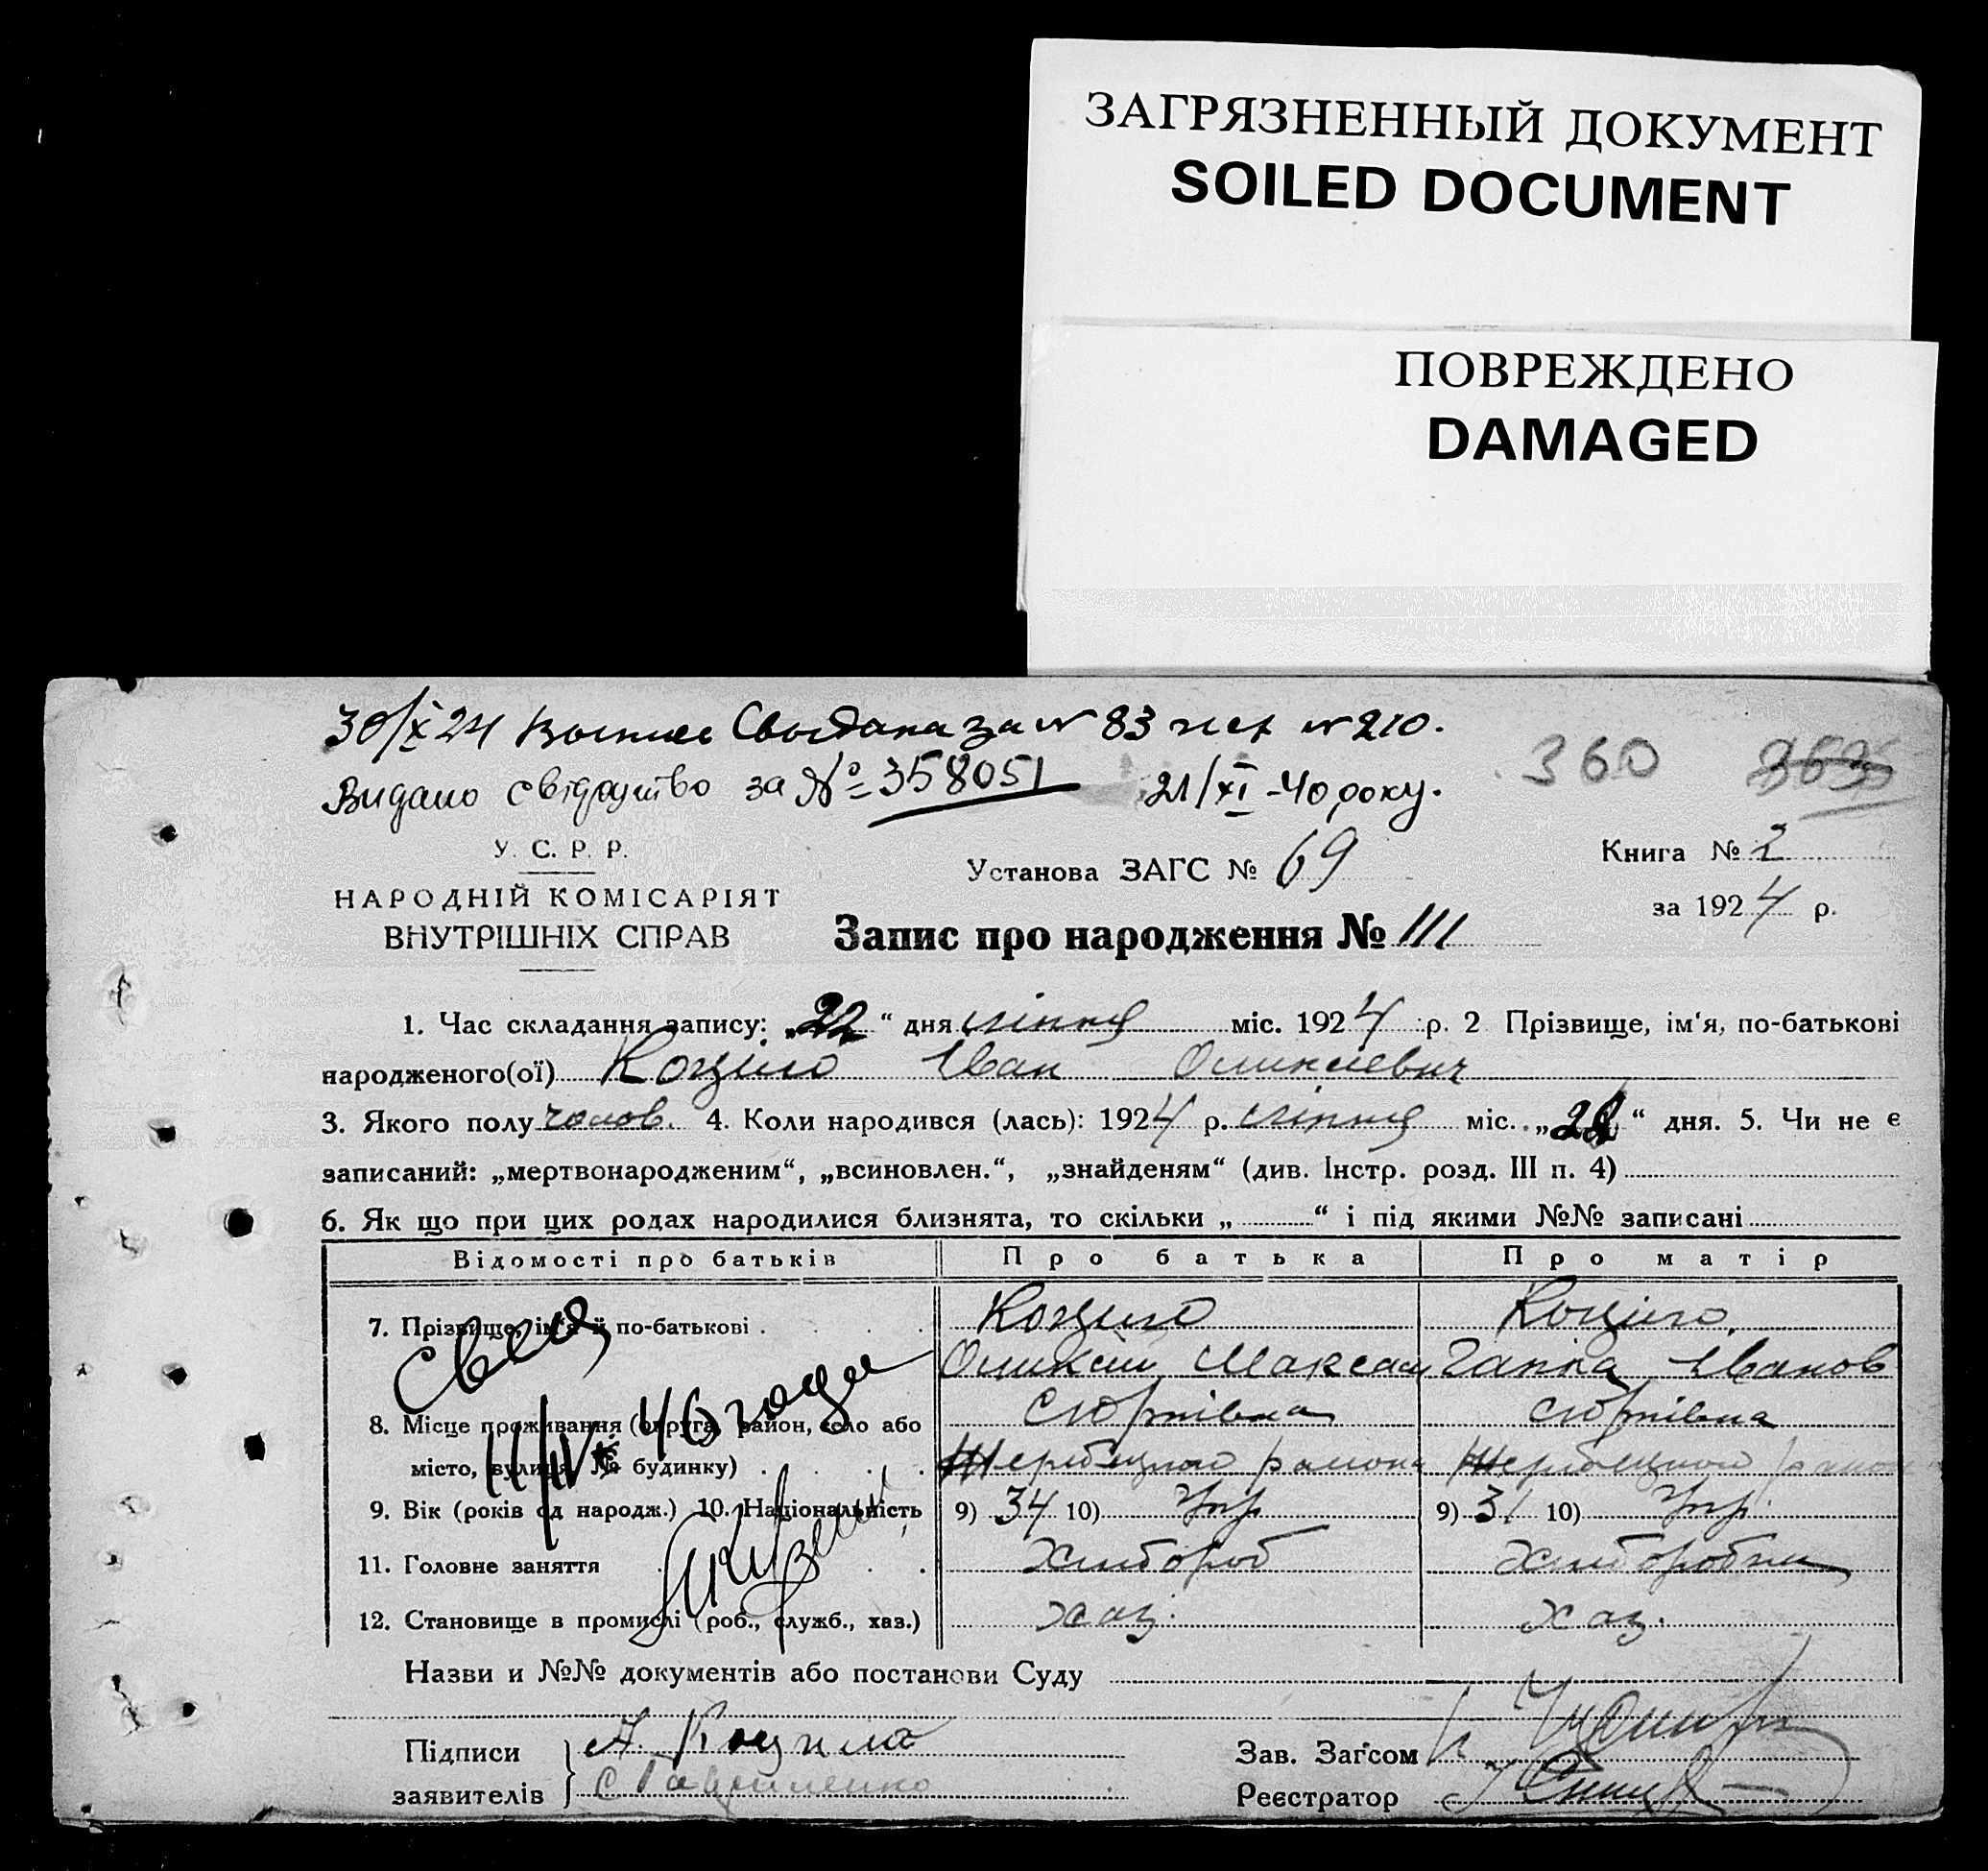 ЗАГРЯЗНЕННЫЙ ДОКУМЕНТ
SOILED DOCUMENT
ПОВРЕЖДЕНО
DAMAGED
30/X 24 за № 83 № 210.
Видано свідоцтво за № 358051 21/XI - 40 року. 360 363
У. С. Р. Р.
Установа ЗАГС № 69
Книга № 2
НАРОДНІЙ КОМІСАРІЯТ
за 1924 р.
ВНУТРІШНІХ СПРАВ
Запис про народження № 111
1. Час складання запису: „22“ дня липня міс. 1924 р. 2 Прізвище, ім'я, по-батькові
народженого(ої) Коцило Іван Олексієвич
3. Якого полу чолов. 4. Коли народився (лась): 1924 р. липня міс. „ “ дня. 5. Чи не є
записаний: „мертвонародженим“, „всиновлен.“, „знайденям“ (див. Інстр. розд. III п. 4)
6. Як що при цих родах народилися близнята, то скільки „ “ і під якими №№ записані
Відомості про батьків Про батька Про матір
7. Прізвище, ім'я й по-батькові Коцило Коцило,
Олексій Максим Ганна Іванов
8. Місце проживання (округа, район, село або
місто, вулиця, № будинку) района
9. Вік (років од народж.) 10. Національність 9) 34 10) Укр 9) 31 10) Укр.
11. Головне заняття Хлібороб Хліборобка
12. Становище в промислі (роб., служб., хаз.) хаз. хаз.
46 года
Назви и №№ документів або постанови Суду
Підписи А. Коцила Зав. Загсом
заявителів Гавриленко Реєстратор